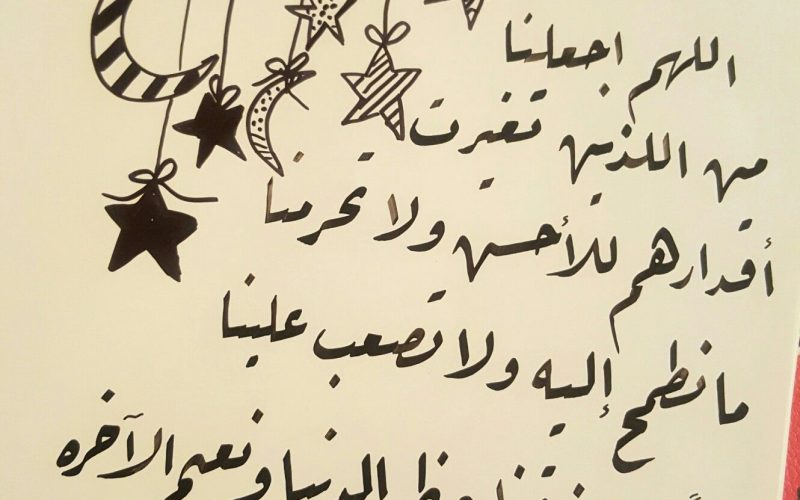 اللهم اجعلنا
من اللذين تغيرت
أقدارهم للأحسن ولا تحرمنا
ما نطمح إليه ولا تصعب علينا
حظ الدنيا ونعيم الآخره